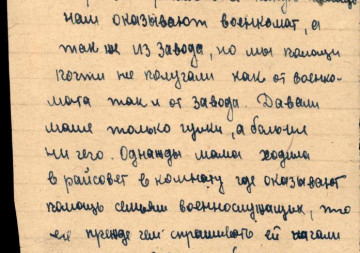 нам оказывают военкомат, а
так же из завода, но мы помощи
почти не получали как от военко-
мата так и от завода. Давали
маме только гудки, а больше
ни чего. Однажды мама ходила
в райсовет в комнату где оказывают
помощь семьям военнослужащих, то
ей прежде чем спрашивать ей начали